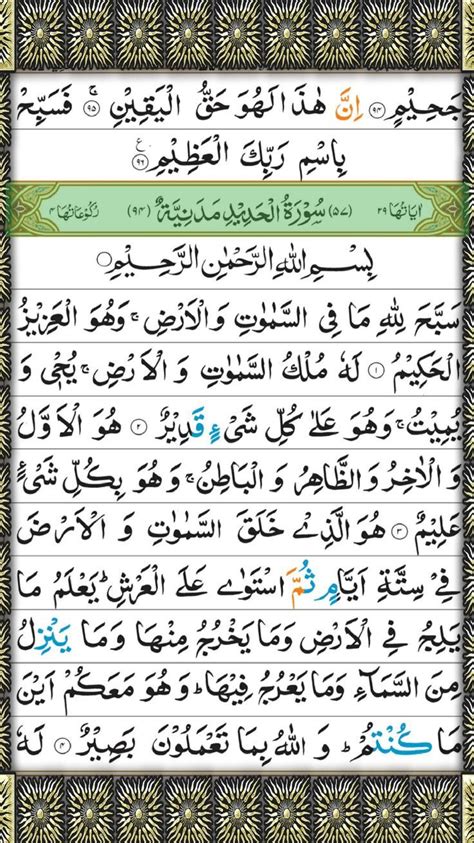 جَحِيْمٍ ۝۹۴ اِنَّ هٰذَا لَهُوَ حَقُّ الْيَقِيْنِ ۝۹۵ۚ فَسَبِّحْ
بِاسْمِ رَبِّكَ الْعَظِيْمِ ۝۹۶ ع
اٰيَاتُهَا ۲۹ (۵۷) سُوْرَةُ الْحَدِيْدِ مَدَنِيَّةٌ (۹۴) رُكُوْعَاتُهَا ۴
بِسْمِ اللهِ الرَّحْمٰنِ الرَّحِيْمِ
سَبَّحَ لِلّٰهِ مَا فِي السَّمٰوٰتِ وَالْاَرْضِ ۚ وَهُوَ الْعَزِيْزُ
الْحَكِيْمُ ۝۱ لَهٗ مُلْكُ السَّمٰوٰتِ وَ الْاَرْضِ ۚ يُحْيٖ وَ
يُمِيْتُ ۚ وَهُوَ عَلٰى كُلِّ شَيْءٍ قَدِيْرٌ ۝۲ هُوَ الْاَوَّلُ
وَ الْاٰخِرُ وَ الظَّاهِرُ وَ الْبَاطِنُ ۚ وَ هُوَ بِكُلِّ شَيْءٍ
عَلِيْمٌ ۝۳ هُوَ الَّذِيْ خَلَقَ السَّمٰوٰتِ وَ الْاَرْضَ
فِيْ سِتَّةِ اَيَّامٍ ثُمَّ اسْتَوٰى عَلَى الْعَرْشِ ؕ يَعْلَمُ مَا
يَلِجُ فِي الْاَرْضِ وَمَا يَخْرُجُ مِنْهَا وَمَا يَنْزِلُ
مِنَ السَّمَآءِ وَمَا يَعْرُجُ فِيْهَا ؕ وَ هُوَ مَعَكُمْ اَيْنَ
مَا كُنْتُمْ ؕ وَ اللهُ بِمَا تَعْمَلُوْنَ بَصِيْرٌ ۝۴ لَهٗ